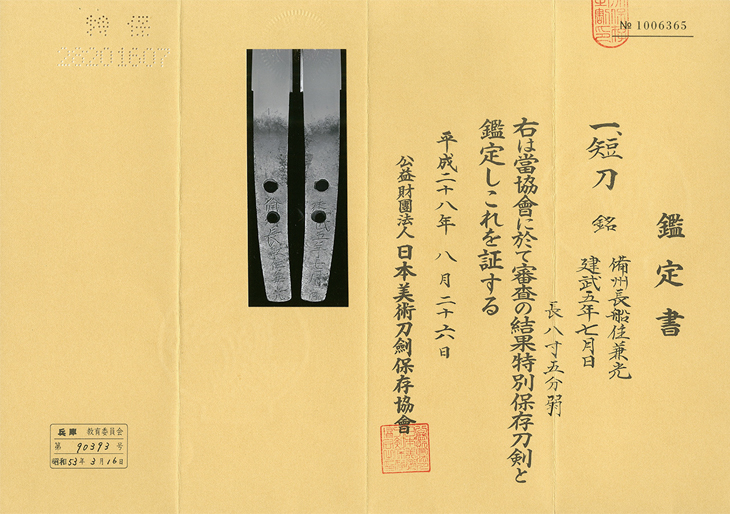 № 1006365
鑑定書
一、短刀 銘 備州長船住兼光
建武五年七月日
長八寸五分弱
右は當協會に於て審査の結果特別保存刀剣と
鑑定しこれを証する
平成二十八年 八月二十六日
公益財團法人 日本美術刀劍保存協會
特保
20201607
兵庫 教育委員会
第 90393 号
昭和53年3月16日